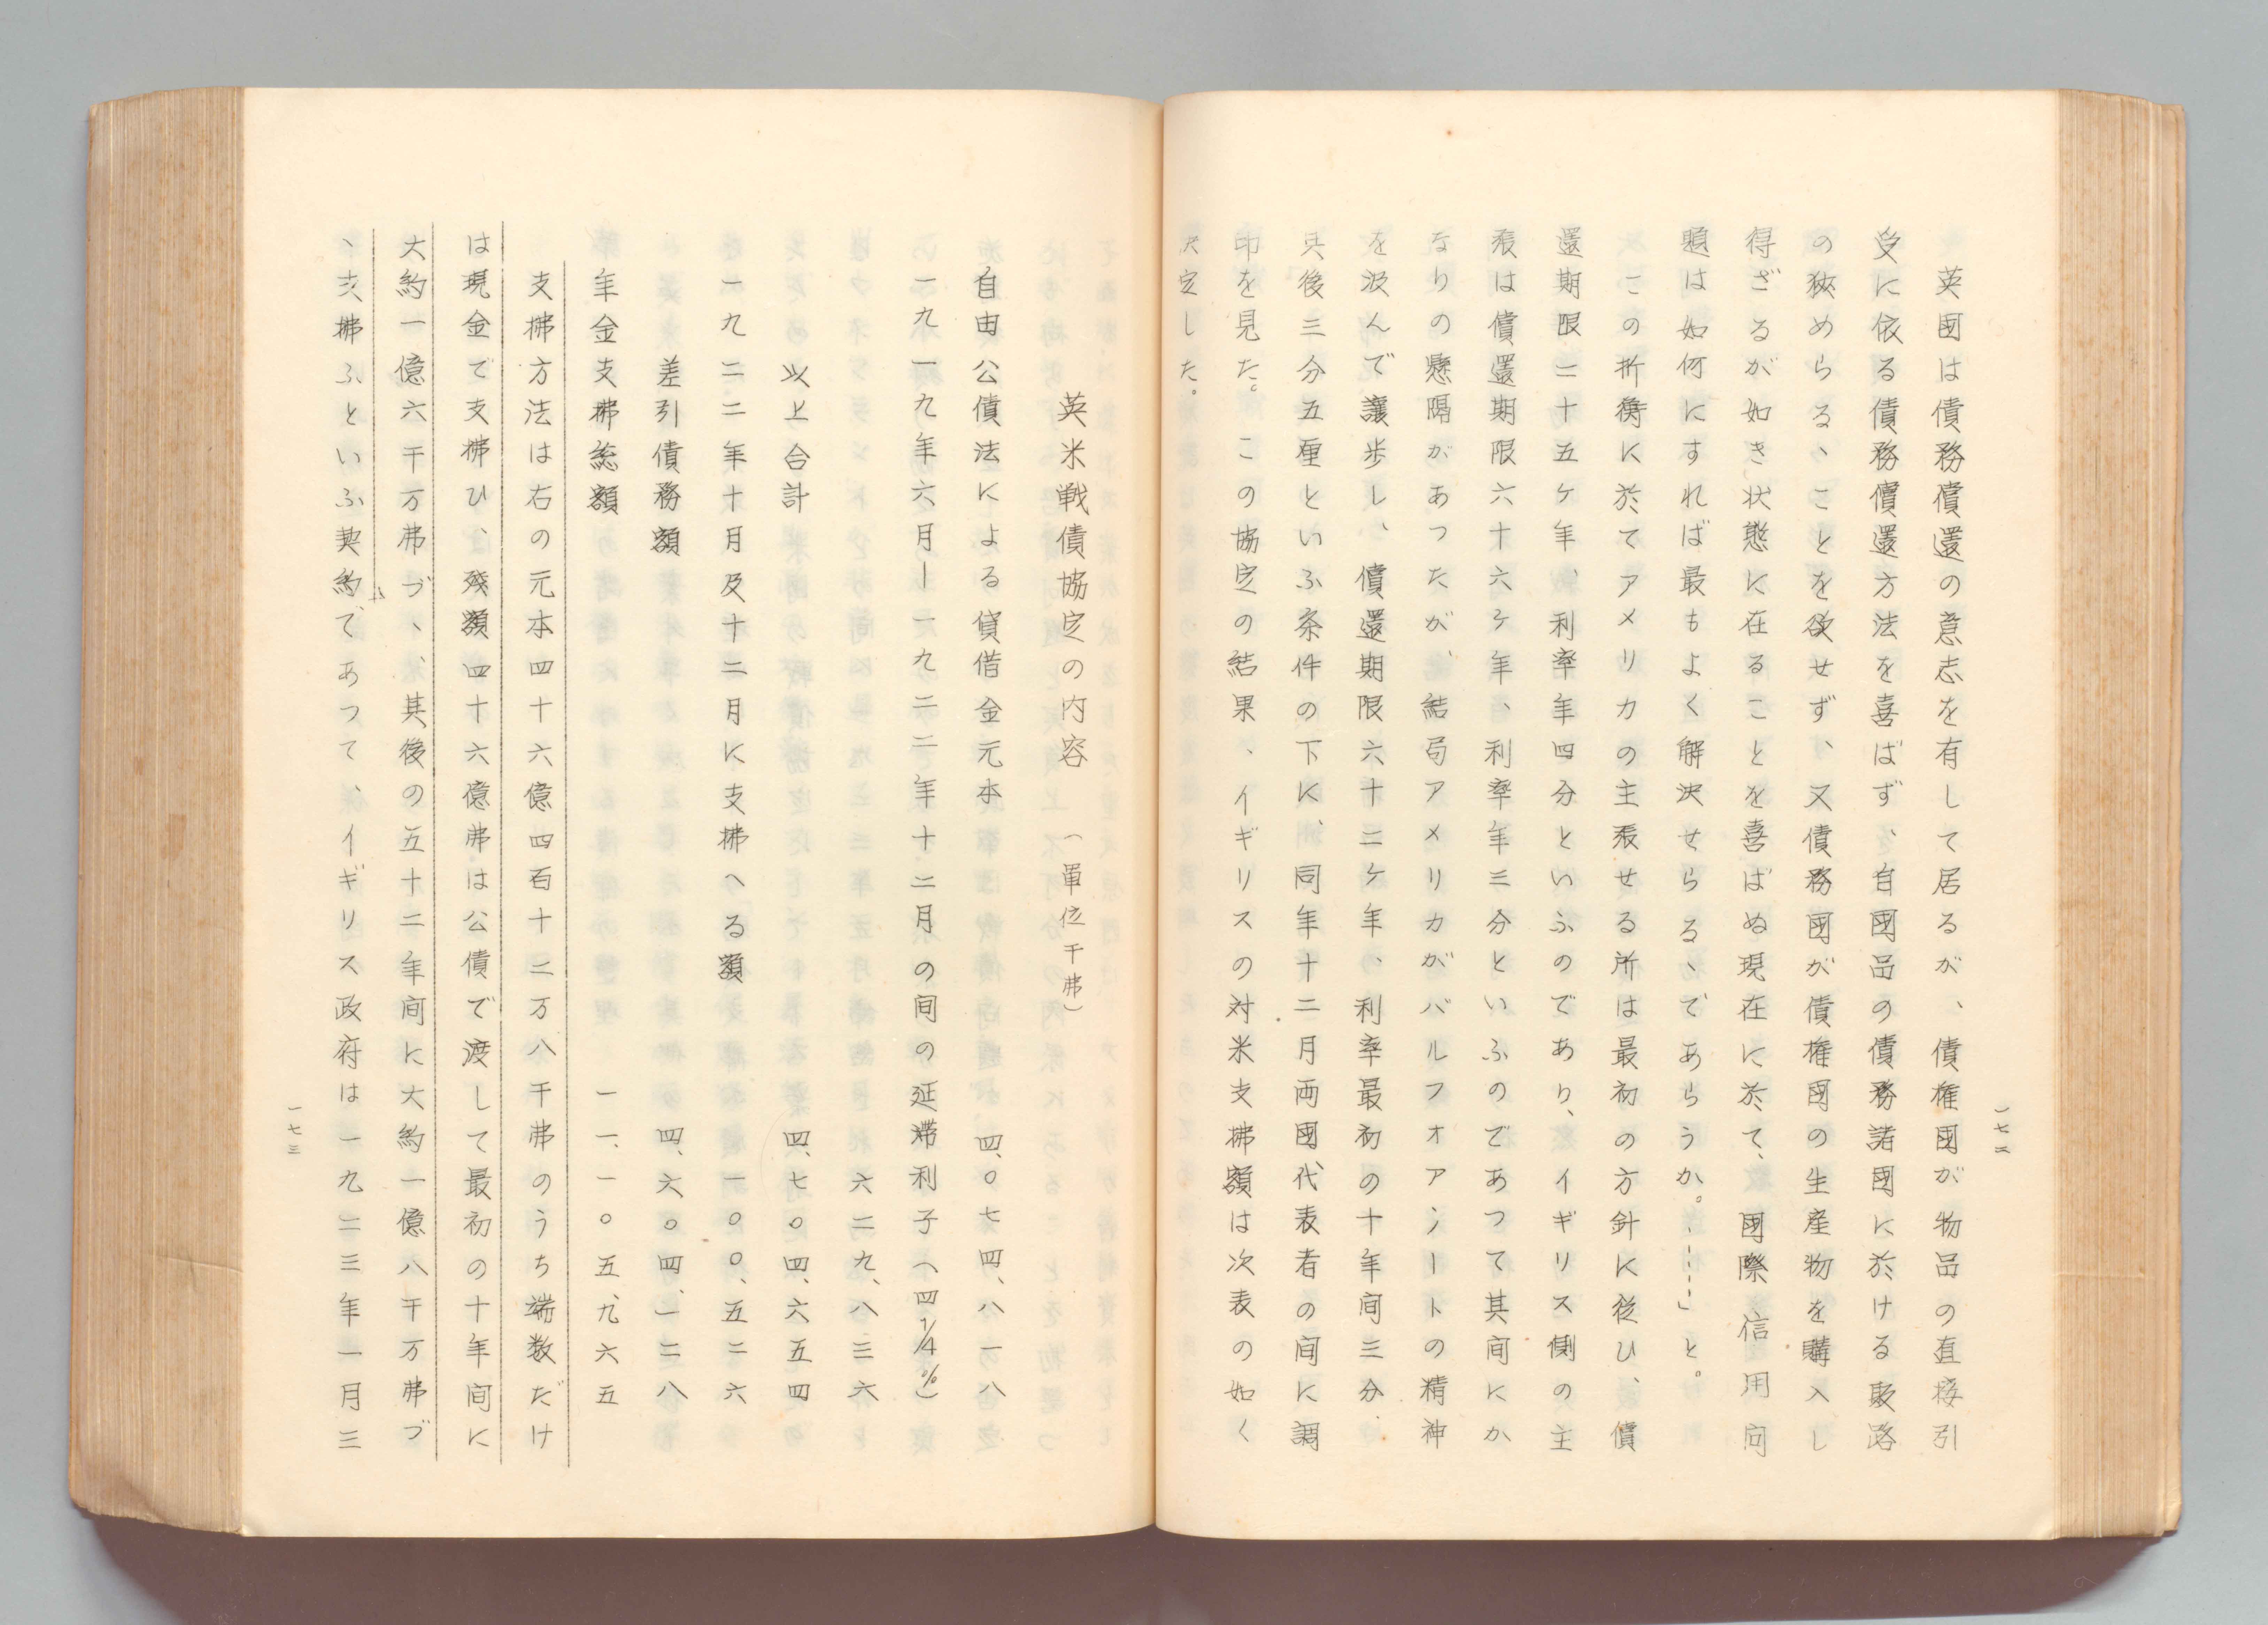 英国は債務償還の意志を有して居るが、債権國が物品の直接引
受に依る債務償還方法を喜ばず、自國品の債務諸國に於ける販路
の狹めらるゝことを欲せず、又債務國が債権國の生産物を購入し
得ざるが如き状態に在ることを喜ばぬ現在に於て、國際信用问
題は如何にすれば最もよく解決せらるゝであらうか。-----」と。
この折衝に於てアメリカの主張せる所は最初の方針に従ひ、償
還期限二十五ケ年、利率年四分といふのであり、イギリス側の主
張は償還期限六十六ケ年、利率年三分といふのであつて其间にか
なりの懸隔があつたが、結局アメリカがバルフオアノートの精神
を汲んで讓歩し、償還期限六十二ケ年、利率最初の十年间三分.
其後三分五厘といふ条件の下に、同年十二月両國代表者の间に調
印を見た。この協定の結果、イギリスの対米支拂額は次表の如く
決定した。
一七二
英米戦債協定の内容（單位千弗）
自由公債法による貸借金元本 四、〇七四、八一八
一九一九年六月ー一九二二年十二月の间の延滞利子（四1/4%） 六二九、八三六
以上合計 四、七〇四、六五四
一九二二年十月及十二月に支拂へる額 一〇〇、五二六
差引債務額 四、六〇四、一二八
年金支拂総額 一一、一〇五、九六五
支拂方法は右の元本四十六億四百十二万八千弗のうち端数だけ
は現金で支拂ひ、残額四十六億弗は公債で渡して最初の十年间に
大約一億六千万弗づゝ、其後の五十二年间に大約一億八千万弗づ
ゝ支拂ふといふ契約であつて、イギリス政府は一九二三年一月三
一七三